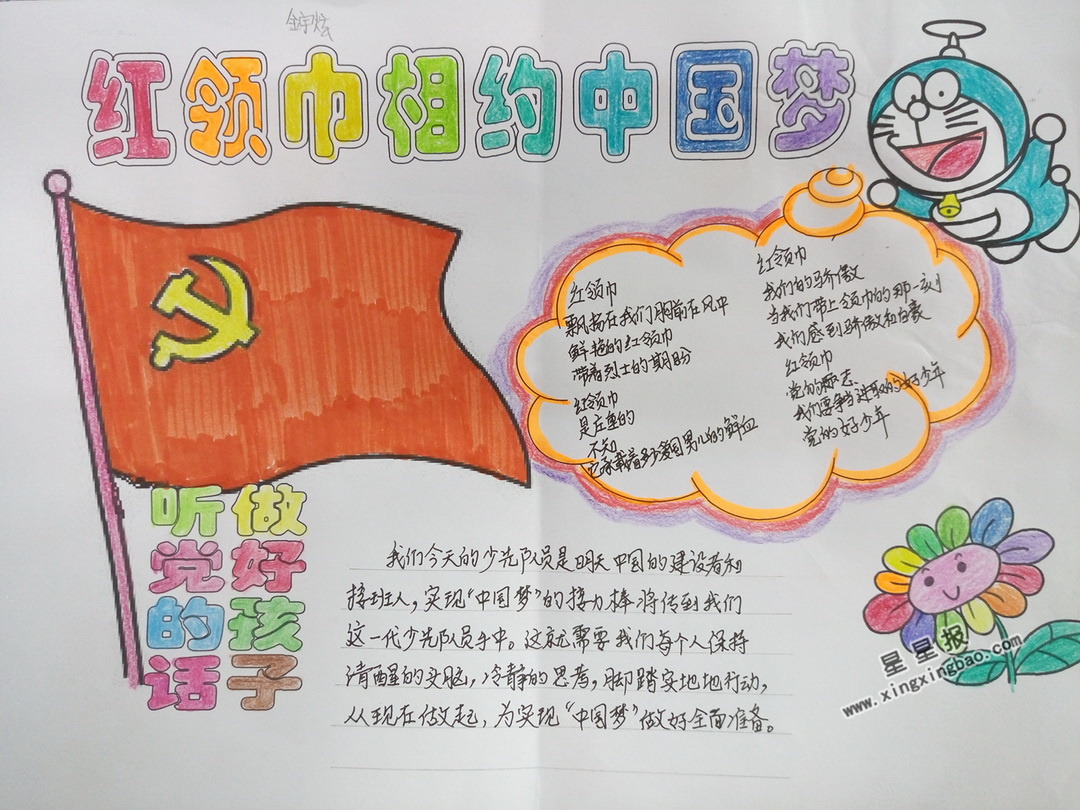 金宇炫
红领巾相约中国梦
红领巾
飘扬在我们胸前在风中
鲜艳的红领巾
带着烈士的期盼
红领巾
是庄重的
不知
它承载着多少爱国男儿的鲜血
红领巾
我们的骄傲
当我们带上领巾的那一刻
我们感到骄傲和自豪
红领巾
党的标志
我们要争当进取的好少年
党的好少年
听党的话
做好孩子
我们今天的少先队员是明天中国的建设者和
接班人，实现“中国梦”的接力棒将传到我们
这一代少先队员手中。这就需要我们每个人保持
清醒的头脑，冷静的思考，脚踏实地地行动，
从现在做起，为实现“中国梦”做好全面准备。
星星报
www.xingxingbao.com